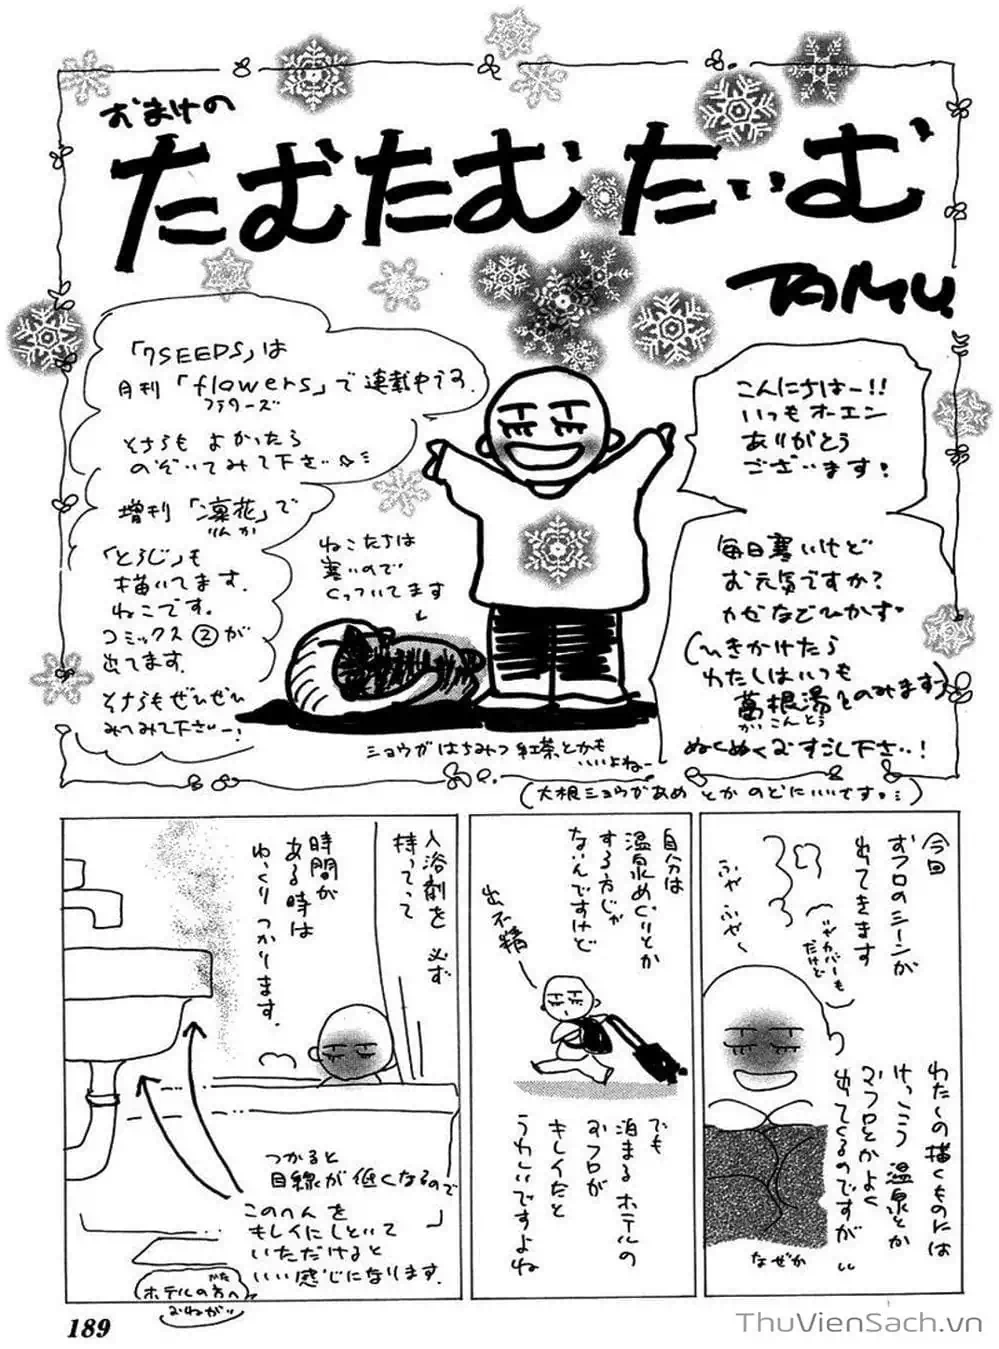 おまけの
たむたむたいむ
TAMU.
こんにちはー!!
いつもオーエン
ありがとう
ございます!
毎日寒いけど
お元気ですか?
カゼなどひかず
(ひきかけたら
わたしはいつも
葛根湯とのみます)
かっこんとう
ぬくぬくおすごし下さい!
「7SEEDS」は
月刊「flowers」で連載中です.
フラワーズ
そちらもよかったら
のぞいてみて下さい
増刊「凛花」で
りんか
「とらじ」も
描いてます.
ねこです。
コミックス②が
出てます.
そちらもぜひぜひ
みてみて下さいー!
ねこたちは
寒いので
くっついてます
ショウガはちみつ紅茶とかも
いいよねー
(大根ショウガあめとかのどにいいです)
今回
おフロのシーンが
出てきます
ふや ふや~
だけど
わたしの描くものには
けっこう温泉とか
おフロとかよく
出てくるのですが
なぜか
自分は
温泉めぐりとか
する方じゃ
ないんですけど
出不精
でも
泊まるホテルの
おフロが
キレイだと
うれしいですよね
入浴剤を必ず
持ってって
時間が
ある時は
ゆっくりつかります.
つかると
目線が低くなるので
このへんを
キレイにしといて
いただけると
いい感じになります.
ホテルの方へ
かた
おねがい
189
ThuVienSach.vn